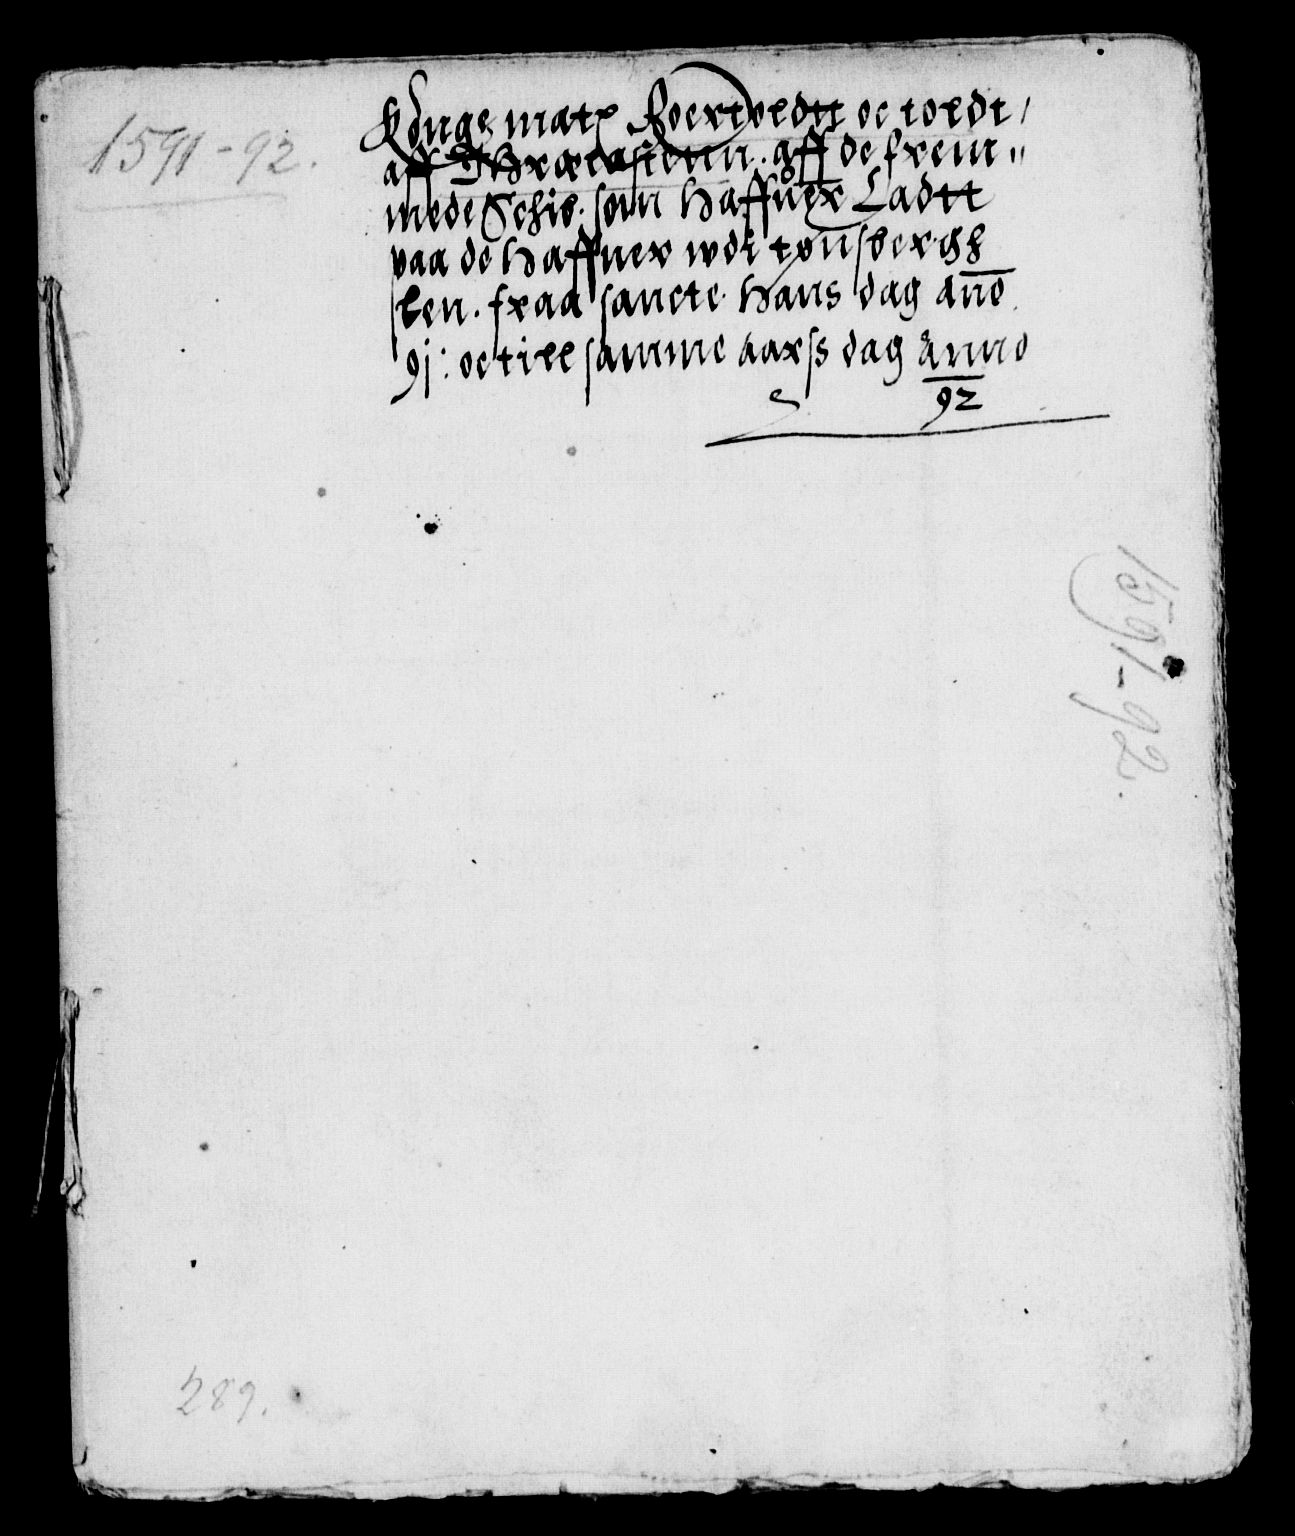 1591-92.
Konge matz Koertoldtt oc toldt /
aff Threlastenn. aff de frem"
mede Schib. som Haffuer Ladtt
paa de Haffner wdi tønsbergh
len. fraa sancte Hans dag ano
91: oc till samme aarss dag Anno
92
1591-92.
289.